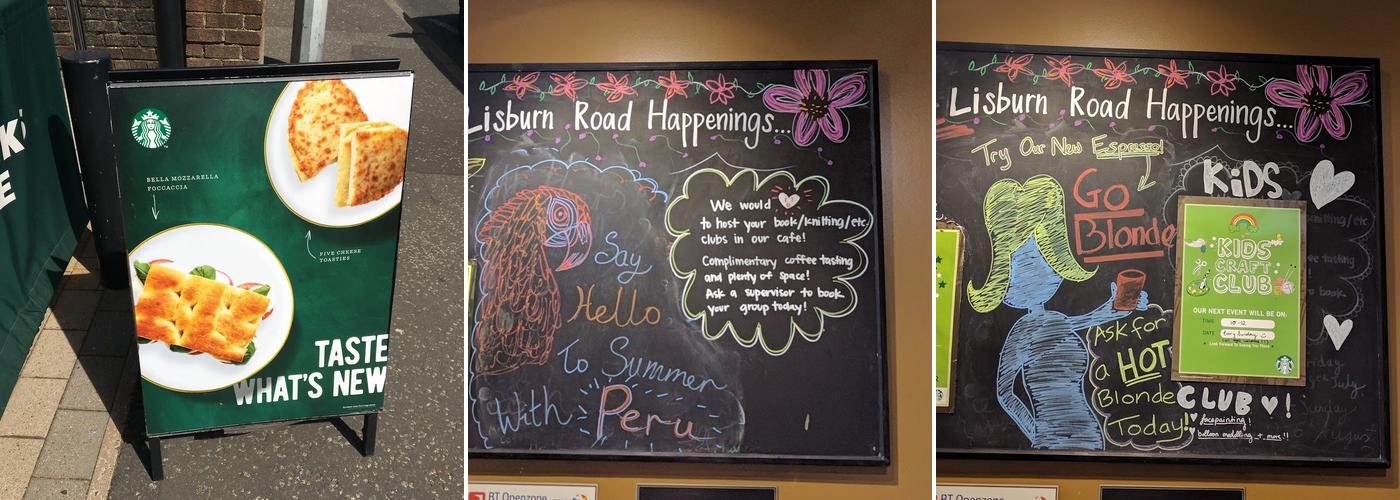 K
E
BELLA MOZZARELLA
FOCCACCIA
FIVE CHEESE
TOASTIES
TASTE
WHAT'S NEW
Lisburn Road Happenings...
We would
to host your book/knitting/etc
clubs in our cafe!
Complimentary coffee tasting
and plenty of space!
Ask a supervisor to book
your group today!
Say
Hello
To Summer
With Peru
BT Openzone
Lisburn Road Happenings...
Try Our New Espresso!
Go
Blonde
Ask for
a HOT
Blonde
Today!
KiDS
KIDS
CRAFT
CLUB
OUR NEXT EVENT WILL BE ON:
TIME 10-12
DATE Every Sunday
Look Forward To Seeing You There
CLUB !
facepainting!
balloon modelling + more!!
knitting/etc
tasting
to book
July
Sunday
August
BT Openzone